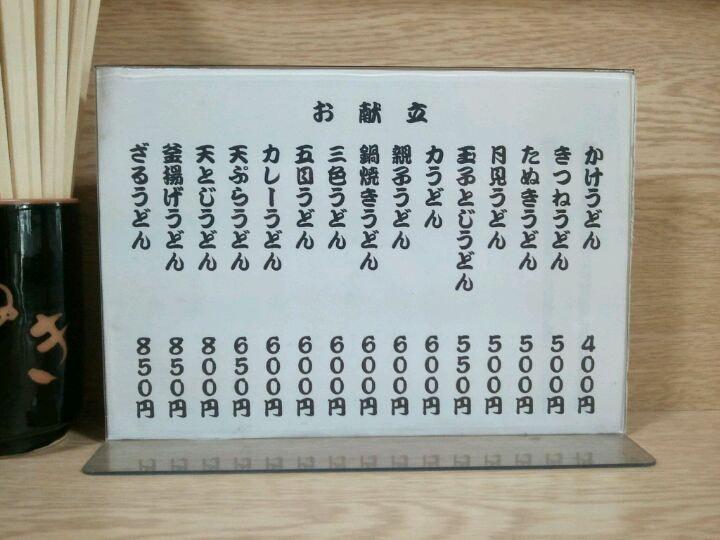 お献立
かけうどん 400円
きつねうどん 500円
たぬきうどん 500円
月見うどん 500円
玉子とじうどん 550円
力うどん 600円
親子うどん 600円
鍋焼きうどん 600円
三色うどん 600円
五目うどん 600円
カレーうどん 600円
天ぷらうどん 650円
天とじうどん 800円
釜揚げうどん 850円
ざるうどん 850円